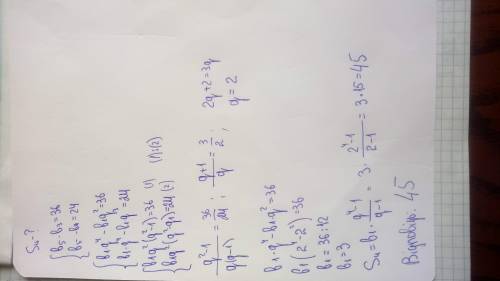 S₄-?
{b₅-b₃=36
{b₅-b₄=24
{b₁q⁴-b₁q²=36
{b₁q⁴-b₁q³=24
{b₁q²(q²-1)=36 (1)
{b₁q²(q²-q)=24 (2) (1):(2)
q²-1/q(q-1) = 36/24 ; q+1/q = 3/2 ; 2q+2=3q
q=2
b₁·q⁴-b₁·q²=36
b₁(2⁴-2²)=36
b₁=36:12
b₁=3
S₄=b₁·q⁴-1/q-1 = 3·2⁴-1/2-1 = 3·15=45
Відповідь: 45